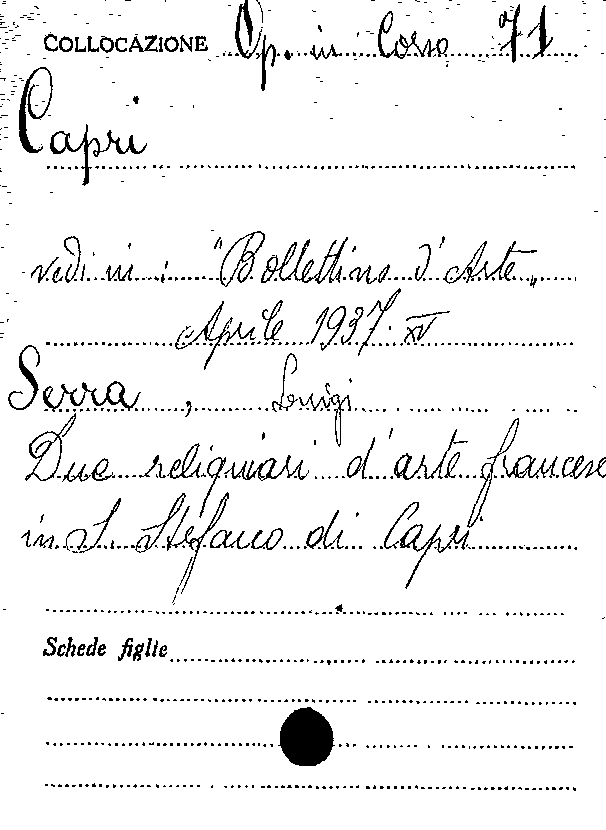 COLLOCAZIONE Op. in Corso 71
Capri
vedi in : "Bollettino d'Arte„
Aprile 1937. XV
Serra , Luigi
Due reliquiari d'arte francese
in S. Stefano di Capri
Schede figlie